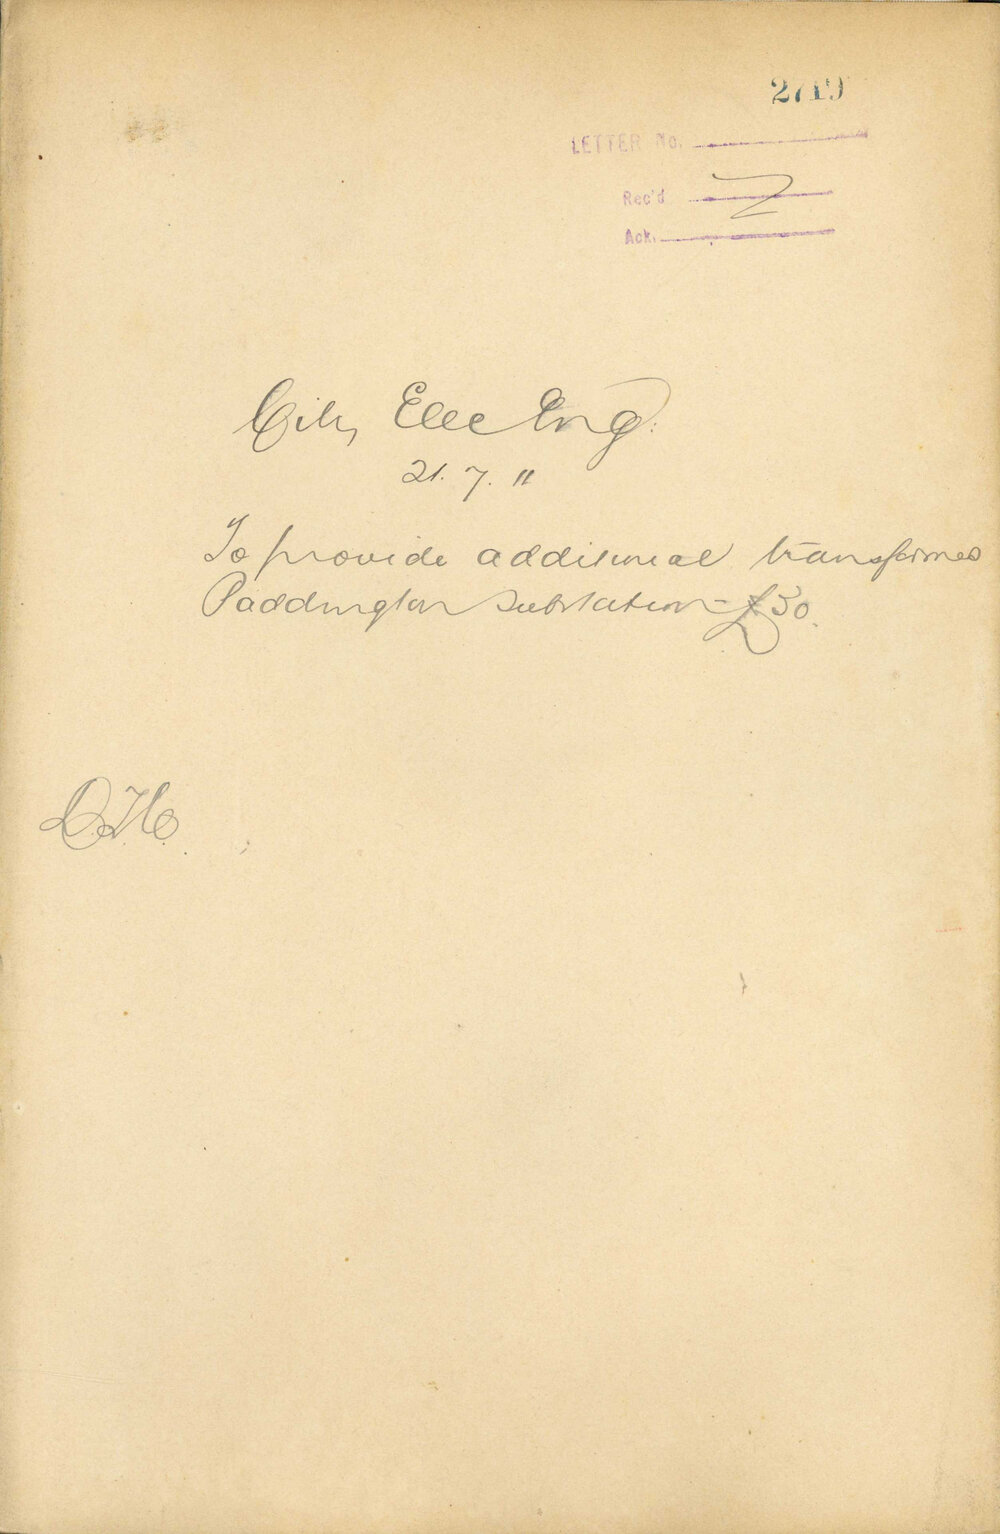 2719
LETTER No.
Rec'd
Ack.
City Elec Eng.
21. 7. 11
To provide additional transformer
Paddington Substation - £30.